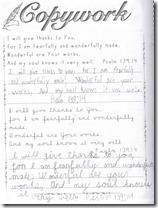 Copywork
I will give thanks to You,
for I am fearfully and wonderfully made;
Wonderful are Your works,
And my soul knows it very well. Psalm 139:14
I will give thanks to you, for I am fearfully
and wonderfully made; Wonderful are your
works, And my soul knows it very well.
Psalm 139:14
I will give thanks to You,
for I am fearfully and wonderfully
made;
Wonderful are Your works,
And my soul knows it very well
Psalm 139:14
I will give thanks to you,
for I am fearfully and wonderfully
made; Wonderful are your
works, And my soul knows
it very well Psalm 139:14